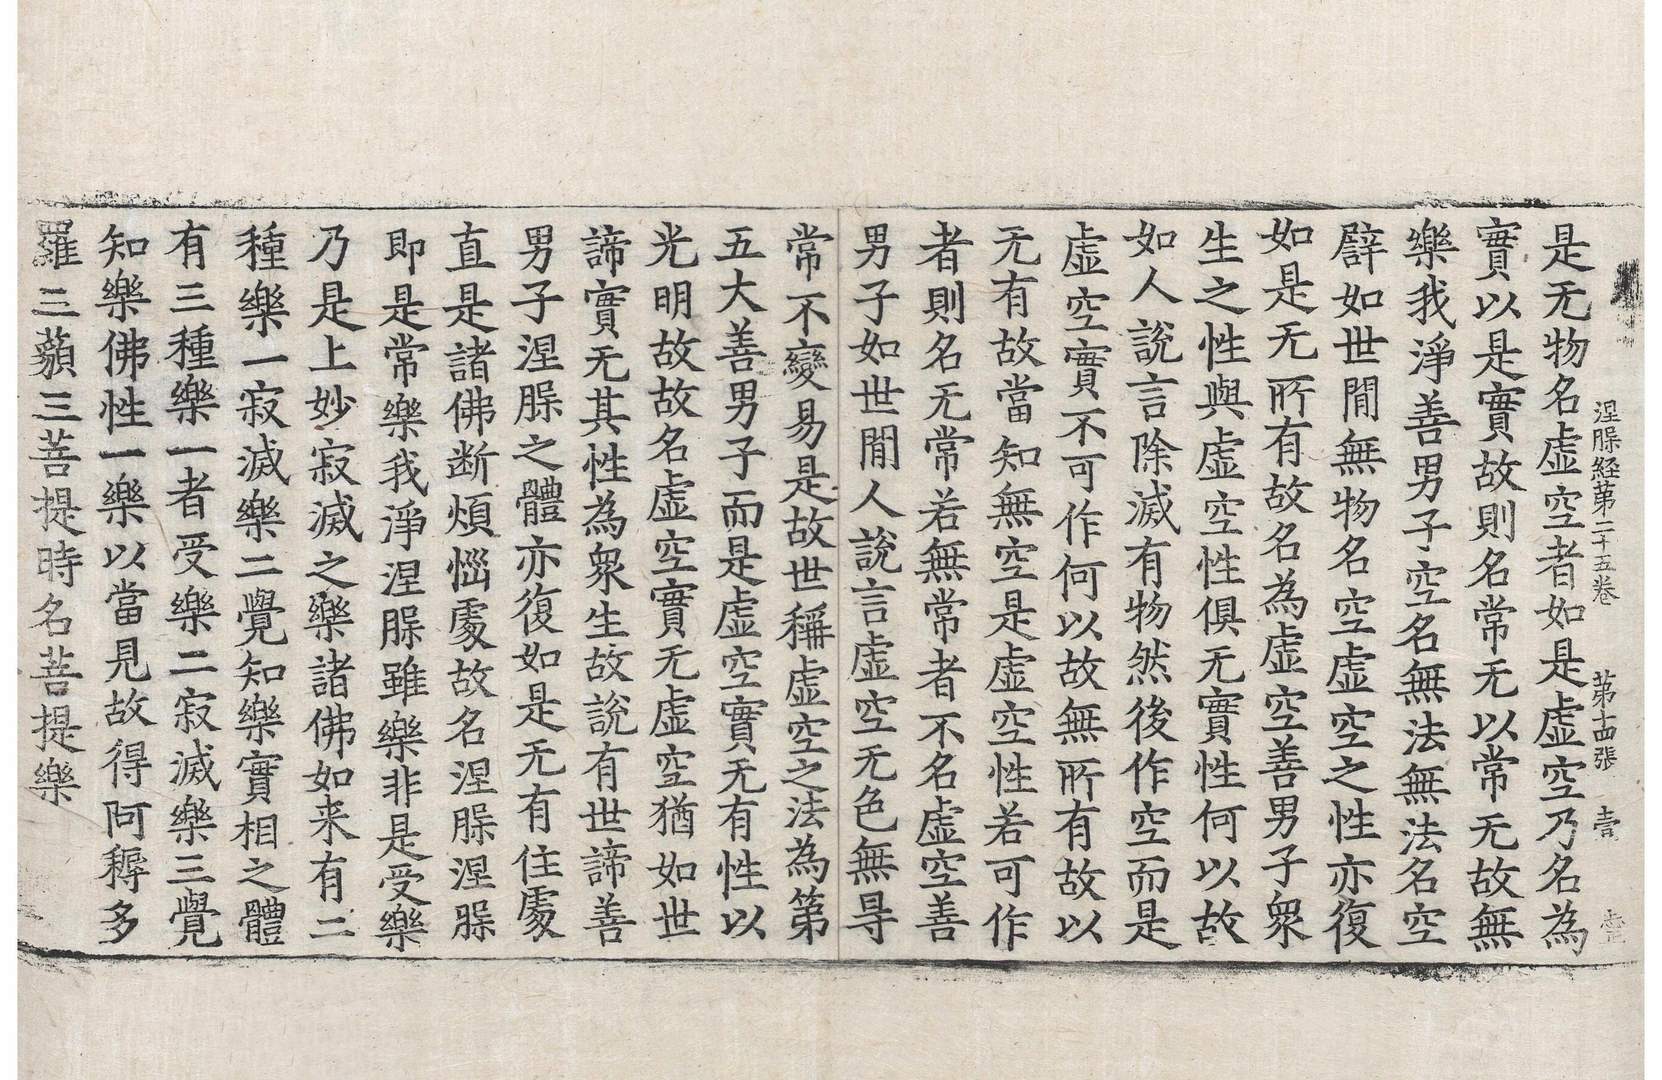 涅槃経第二十五卷 第十四張 壹 壹
是无物名虚空者如是虚空乃名為
實以是實故則名常无以常无故無
樂我淨善男子空名無法無法名空
譬如世間無物名空虚空之性亦復
如是无所有故名為虚空善男子衆
生之性與虚空性俱无實性何以故
如人說言除滅有物然後作空而是
虚空實不可作何以故無所有故以
无有故當知無空是虚空性若可作
者則名无常若無常者不名虚空善
男子如世間人說言虚空无色無㝵
常不變易是故世稱虚空之法為第
五大善男子而是虚空實无有性以
光明故故名虚空實无虚空猶如世
諦實无其性為衆生故說有世諦善
男子涅槃之體亦復如是无有住處
直是諸佛断煩惱處故名涅槃涅槃
即是常樂我淨涅槃雖樂非是受樂
乃是上妙寂滅之樂諸佛如来有二
種樂一寂滅樂二覺知樂實相之體
有三種樂一者受樂二寂滅樂三覺
知樂佛性一樂以當見故得阿耨多
羅三藐三菩提時名菩提樂